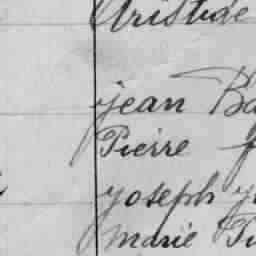 Aristide
jean Ba
Pierre f
yoseph y
marie